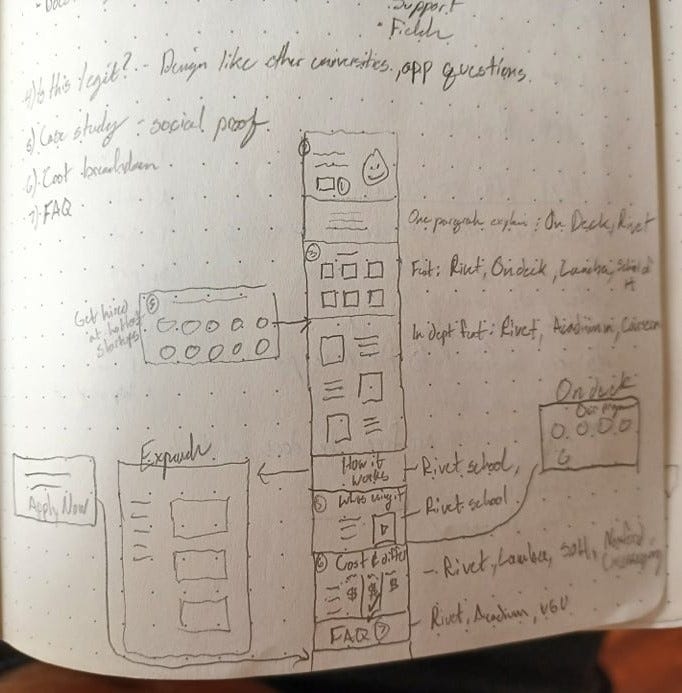 Support
• Fields
4) Is this legit? - Design like other universities, app questions.
5) Case study - social proof
6) Cost breakdown
7) FAQ
1
One paragraph explain: On Deck, Rivet
3
Feat: Rivet, Ondeck, Lambda, School of
Get hired
at hottest
startups
5
In dept feat: Rivet, Acadium,
Ondeck
Our progra
Expands
How it
works
Rivet school,
Apply Now
5 Whos using it
Rivet school
6 Cost & differ
$ $ $
- Rivet, Lambda,
FAQ 7
Rivet, Acadium, VGU